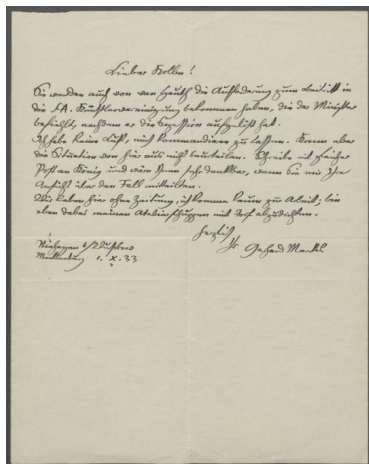 Lieber Kolbe!
Sie werden auch von van Hauth die Aufforderung zum Beitritt in
die F.A. Künstlervereinigung bekommen haben, die der Minister
befiehlt, nachdem er die Sezession aufgelöst hat.
Ich habe keine Lust, mich kommandieren zu lassen. Kann aber
die Situation von hier aus nicht beurteilen. Schreibe mit gleicher
Post an König und wäre Ihnen sehr dankbar, wenn Sie mir Ihre
Ansicht über den Fall mitteilten.
Wir leben hier ohne Zeitung, ich komme kaum zu Arbeit; bin
eben dabei meinen Atelierschuppen mit Torf abzudichten.
herzlich
Ihr Gerhard Marcks
Niehagen b/Wustrow
Mecklenburg 1. X. 33